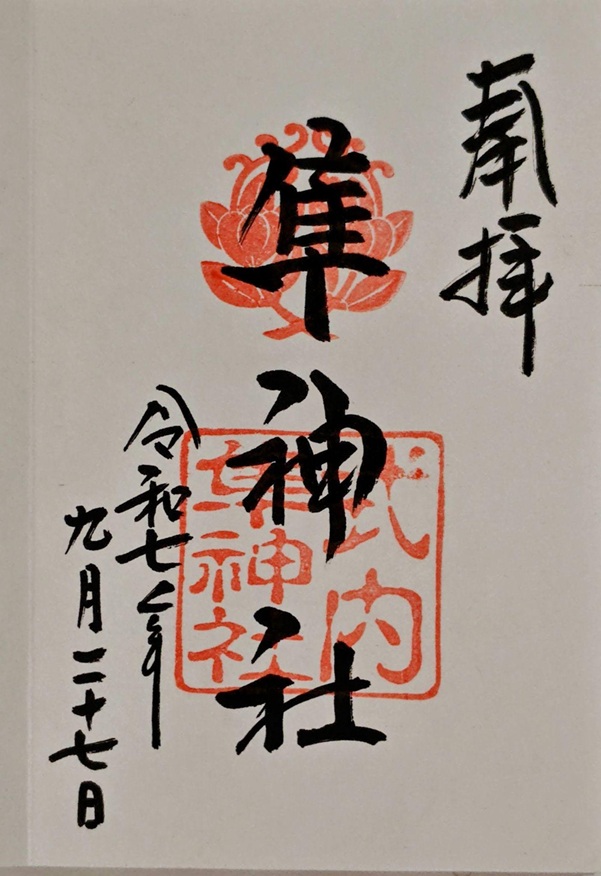 奉拝
隼神社
式内
隼神社
令和七年
九月二十七日